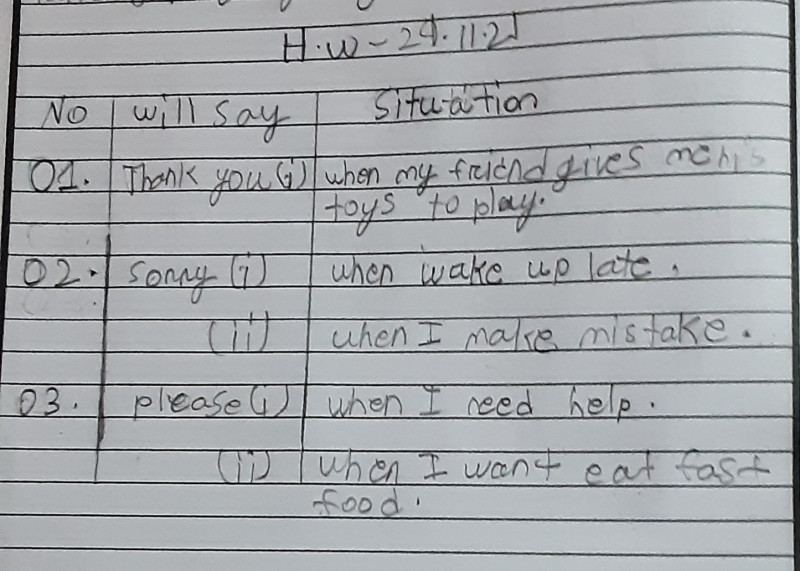 H.W - 24.11.21
No will say Situation
01. Thank you (i) when my friend gives me his
toys to play.
02. sorry (i) when wake up late.
(ii) when I make mistake.
03. please (i) when I need help.
(ii) when I want eat fast
food.